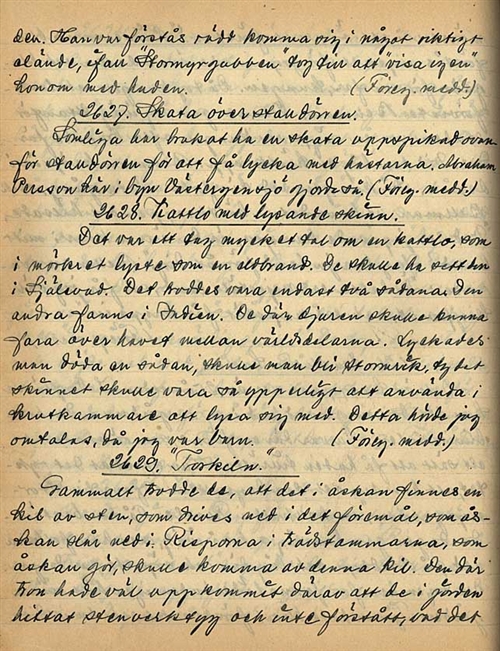 den. Han var förstås rädd komma sig i något riktigt
elände, ifall "Stormyrgubben" tog till att "visa igen"
honom med handen. (Föreg. medd.)
2627. Skata över stalldörren.
Somliga har brukat ha en skata uppspikad ovan-
för stalldörren för att få lycka med hästarna. Abraham
Persson här i byn Västergensjö gjorde så. (Föreg. medd.)
2628. Kattlo med lysande skinn.
Dat var ett tag mycket tal om en kattlo, som
i mörkret lyste som en eldbrand. De skulle ha sett den
i Själevad. Det troddes vara endast två sådana. Den
andra fanns i Indien. De där djuren skulle kunna
fara över havet mellan världsdelarna. Lyckades
man döda en sådan, skulle man bli stormrik, ty det
skinnet skulle vara så ypperligt att använda i
krutkammare att lysa sig med. Detta hörde jag
omtalas, då jag var barn. (Föreg. medd.)
2629. "Torkiln."
Gammalt trodde de, att det i åskan finnes en
kil av sten, som drives ned i det föremål, som ås-
kan slår ned i. Risporna i trädstammarna, som
åskan gör, skulle komma av denna kil. Den där
tron hade väl uppkommit därav att de i jorden
hittat stenverktyg och inte förstått, vad det